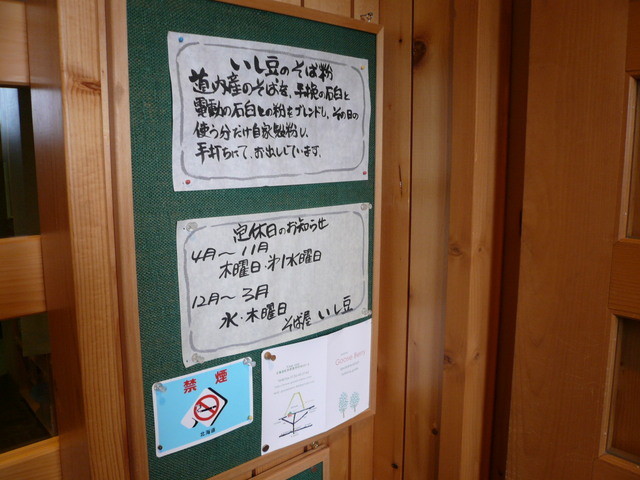 いし豆のそば粉
道内産のそばを、手挽の石臼と
電動の石臼との粉をブレンドし、その日の
使う分だけ自家製粉し、
手打ちにて、お出ししています。
定休日のお知らせ
4月～11月
木曜日・第1水曜日
12月～3月
水・木曜日
そば屋 いし豆
禁煙
北海道